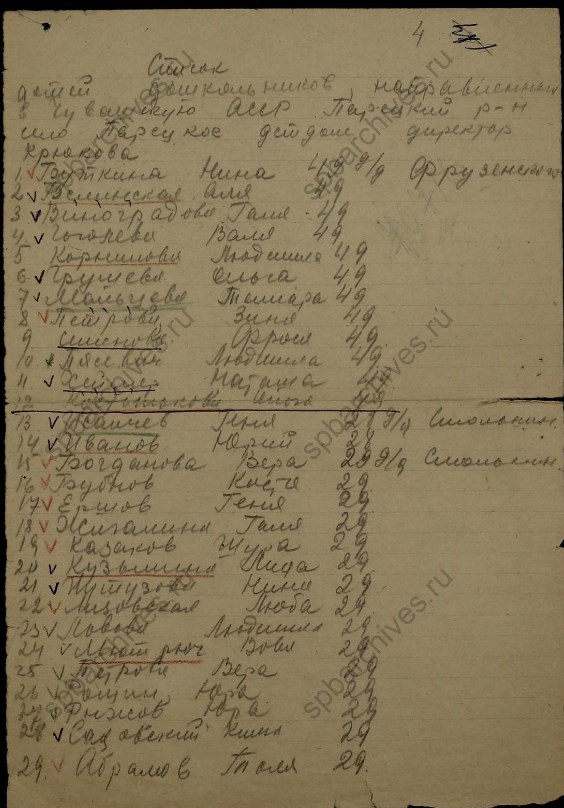 4
Список
детей дошкольников, направленных
в Чувашскую АССР Парецкий р-н
село Парецкое детдом, директор
Крюкова
1. Буткина Нина 49 д/д Фрузенского
2 Велинская Аля 49
3 Виноградова Галя 49
4 Гоголева Валя 49
5 Корнилова Людмила 49
6 Грушева Ольга 49
7 Мальцева Тамара 49
8 Петрова Зина 49
9 Семенова Фрося 49
10 Людмила 49
11 Наташа 49
12 Ольга 49
13 Исаичев Геня 29 д/д Смолокин.
14 Иванов Юрий 29
15 Богданова Вера 29 д/д Смолокин.
16 Бубнов Костя 29
17 Ершов Геня 29
18 Жигалина Галя 29
19 Казаков Шура 29
20 Кузьмина Лида 29
21 Кутузова Нина 29
22 Лизовская Люба 29
23 Лавова Людмила 29
24 Вова 29
25 Петрова Вера 29
26 Юра 29
27 Рыжов Юра 29
28 Садовский Коля 29
29. Абрамов Толя 29.
spbarchives.ru
spbarchives.ru
spbarchives.ru
spbarchives.ru
spbarchives.ru
spbarchives.ru